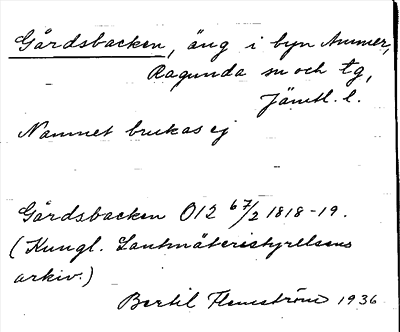 Gårdsbacken, äng i byn Ammer,
Ragunda sn och tg,
Jämtl. l.
Namnet brukas ej
Gårdsbacken O12 67/2 1818-19.
(Kungl. Lantmäteristyrelsens
arkiv.)
Bertil Flemström 1936